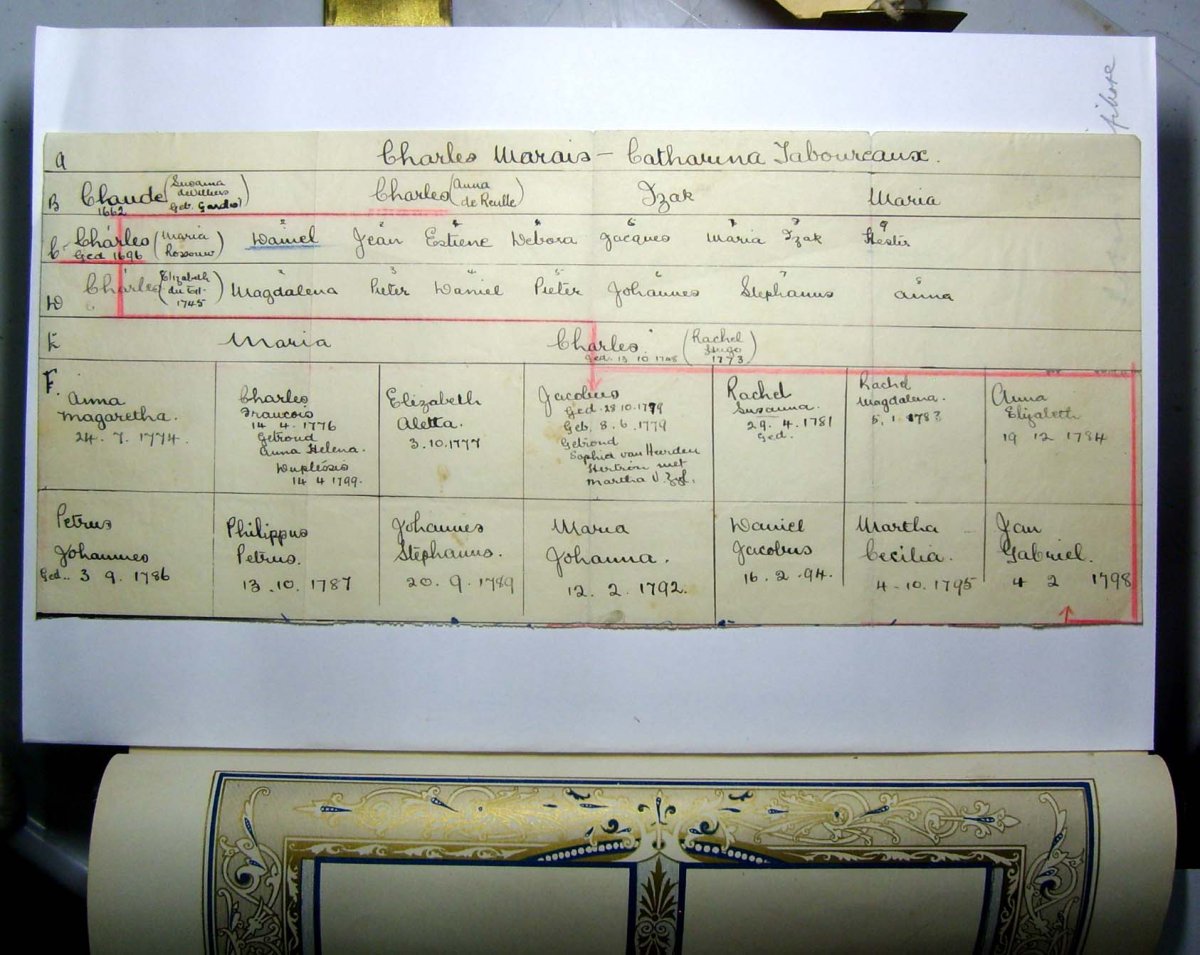 A Charles Marais - Catharina Taboureaux.
B Claude (Susanna de Villiers Geb. Gardio) Charles (Anna de Reulle) Izak Maria
1662
C Charles (Maria Rossouw) 2 Daniel 3 Jean 4 Estiene 5 Debora 6 Jacques 7 Maria 8 Izak 9 Hester
Ged 1696
D Charles (Elizabeth du Toit 1745) 2 Magdalena 3 Pieter 4 Daniel 5 Pieter 6 Johannes 7 Stephanus 8 Anna
E Maria Charles. (Rachel Hugo 1773)
Ged. 13 10 1748
F.
Anna
Magaretha.
24. 7. 1774.
Charles
Francois
14 4. 1776
Getroud
Anna Helena.
Duplessis
14 4 1799.
Elizabeth
Aletta.
3.10.1777
Jacobus
Ged 28.10.1779
Geb. 8. 6. 1779
Getroud
Sophia van Heerden
Hertron met
Martha V. Zyl.
Rachel
Susanna.
29. 4. 1781
Ged.
Rachel
Magdalena.
5. 1. 1783
Anna
Elizabeth
19 12 1784
Petrus
Johannes
Ged. 3 9. 1786
Philippus
Petrus.
13. 10. 1787
Johannes
Stephanus.
20. 9. 1789
Maria
Johanna.
12. 2. 1792.
Daniel
Jacobus
16. 2. 94.
Martha
Cecilia.
4. 10. 1795
Jan
Gabriel.
4 2 1798